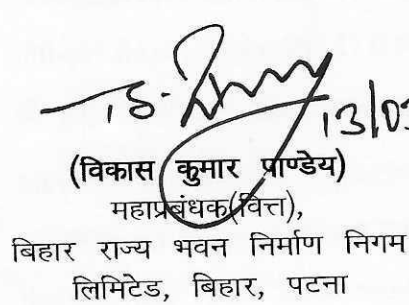 13/03
(विकास कुमार पाण्डेय)
महाप्रबंधक(वित्त),
बिहार राज्य भवन निर्माण निगम
लिमिटेड, बिहार, पटना